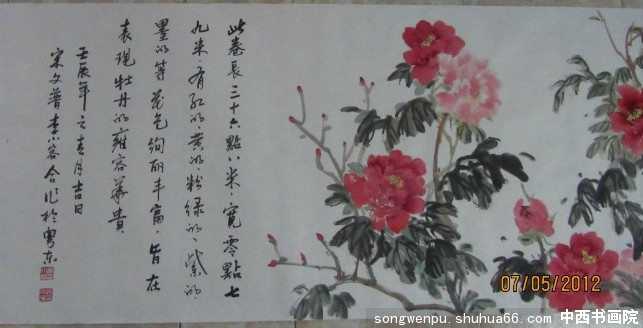 此卷长三十六點八米，寬零點七
九米，有红的，黄的，粉绿的，紫的，
墨的等花色绚丽丰富，皆在
表现牡丹的雍容華貴
壬辰年之吉月吉日
宋文普李容合作於粤东
07/05/2012
songwenpu.shuhua66.com 中西书画院